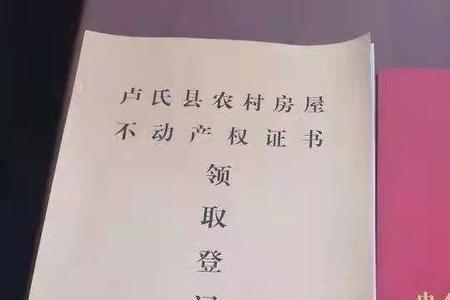 卢氏县农村房屋
不动产权证书
领
取
登